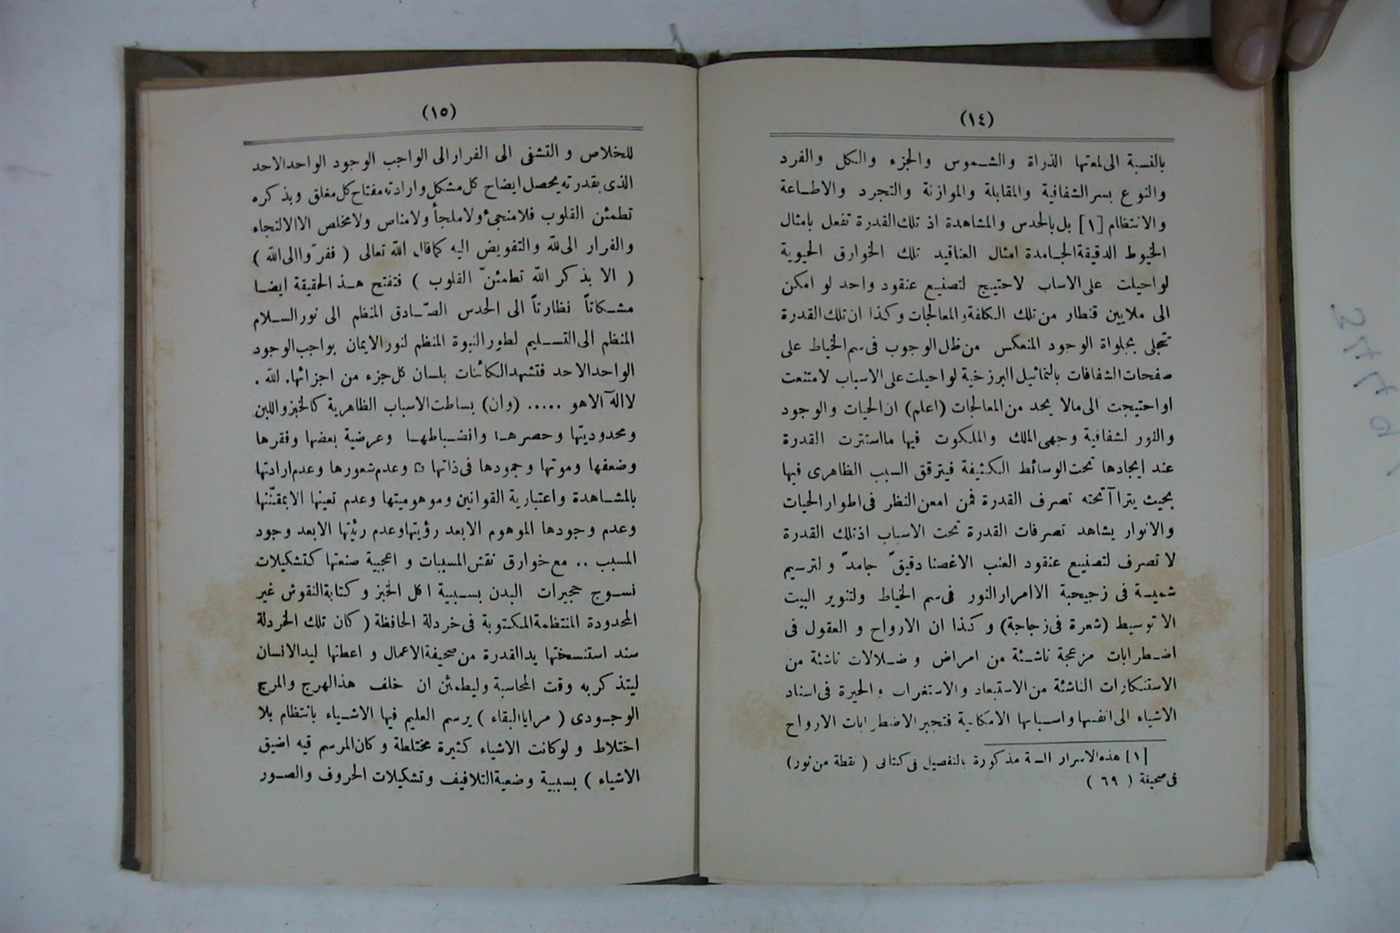 (١٤)
بالنسبة الى لمعتها الذراة والشموس والجزء والكل والفرد
والنوع بسر الشفافية والمقابلة والموازنة والتجرد والاطاعة
والانتظام [١] بل بالحدس والمشاهدة اذ تلك القدرة تفعل بامثال
الخيوط الدقيقة الجامدة امثال العناقيد تلك الخوارق الحيوية
لو احيلت على الاساب لاحتيج لتصنيع عنقود واحد لو امكن
الى ملايين قنطار من تلك الكلفة والمعالجات وكذا ان تلك القدرة
تتجلى بجلواة الوجود المنعكس من ظل الوجوب فى سم الخياط على
صفحات الشفافات بالتماثيل البرزخية لو احيلت على الاسباب لامتنعت
او احتيجت الى مالا يحد من المعالجات (اعلم) ان الحيات والوجود
والنور لشفافية وجهى الملك والملكوت فيها مااستترت القدرة
عند ايجادها تحت الوسائط الكثيفة فيترقق السبب الظاهرى فيها
بحيث يتراآ تحته تصرف القدرة فمن امعن النظر فى اطوار الحيات
والانوار يشاهد تصرفات القدرة تحت الاسباب اذتلك القدرة
لا تصرف لتصنيع عنقود العنب الاغصنا دقيقّ جامدّ ولترسيم
شميسة فى زجيجة الا امرار النور فى سم الخياط ولتنوير البيت
الا توسيط (شعرة فى زجاجة) وكذا ان الارواح و العقول فى
اضطرابات مزعجة ناشئة من امراض و ضلالات ناشئة من
الاستنكارات الناشئة من الاستبعاد والاستغراب والحيرة فى اسناد
الاشياء الى انفسها واسبابها الامكانية فتجبر الاضطرابات الارواح
[١] هذه الاسرار الستة مذكورة بالتفصيل فى كتابى ( نقطة من نور)
فى صحيفة ( ٦٩ )
(١٥)
للخلاص و التشفى الى الفرار الى الواجب الوجود الواحد الاحد
الذى بقدرته يحصل ايضاح كل مشكل وارادته مفتاح كل مغلق وبذكره
تطمئن القلوب فلا منجئ ولا ملجأ ولا مناص ولا مخلص الا الالتجاء
والفرار الى للّه والتفويض اليه كما قال اللّه تعالى ( ففرّوا الى اللّه )
( الا بذكر اللّه تطمئنّ القلوب ) فتفتح هذ الحقيقة ايضا
مشكاتاً نظارتاً الى الحدس الصّادق المنظم الى نور السلام
المنظم الى التسليم لطور النبوة المنظم لنور الايمان بواجب الوجود
الواحد الاحد فتشهد الكائنات بلسان كل جزء من اجزائها. للّه .
لااله الاهو ..... (وان) بساطت الاسباب الظاهرية كالخبز واللبن
ومحدوديتها وحصرها وانضباطها وعرضية بعضها وفقرها
وضعفها وموتها وجمودها فى ذاتها وعدم شعورها وعدم ارادتها
بالمشاهدة واعتبارية القوانين وموهوميتها وعدم تعينها الابمقننها
وعدم وجودها الموهوم الابعد رؤيتها وعدم رئيتها الابعد وجود
المسبب .. مع خوارق نقش المسببات و اعجبية صنعتها كتشكيلات
نسوج حجيرات البدن بسببية اكل الخبز و كتابة النقوش غير
المحدودة المنتظمة المكتوبة فى خردلة الحافظة ( كان تلك الخردلة
سند استنسختها يد القدرة من صحيفة الاعمال و اعطتها ليد الانسان
ليتذكر به وقت المحاسبة وليطمئن ان خلف هذ الهرج والمرج
الوجودى ( مرايا البقاء ) يرسم العليم فيها الاشياء بانتظام بلا
اختلاط و لو كانت الاشياء كثيرة مختلطة و كان المرسم فيه اضيق
الاشياء ) بسببية وضعية التلافيف وتشكيلات الحروف والصور